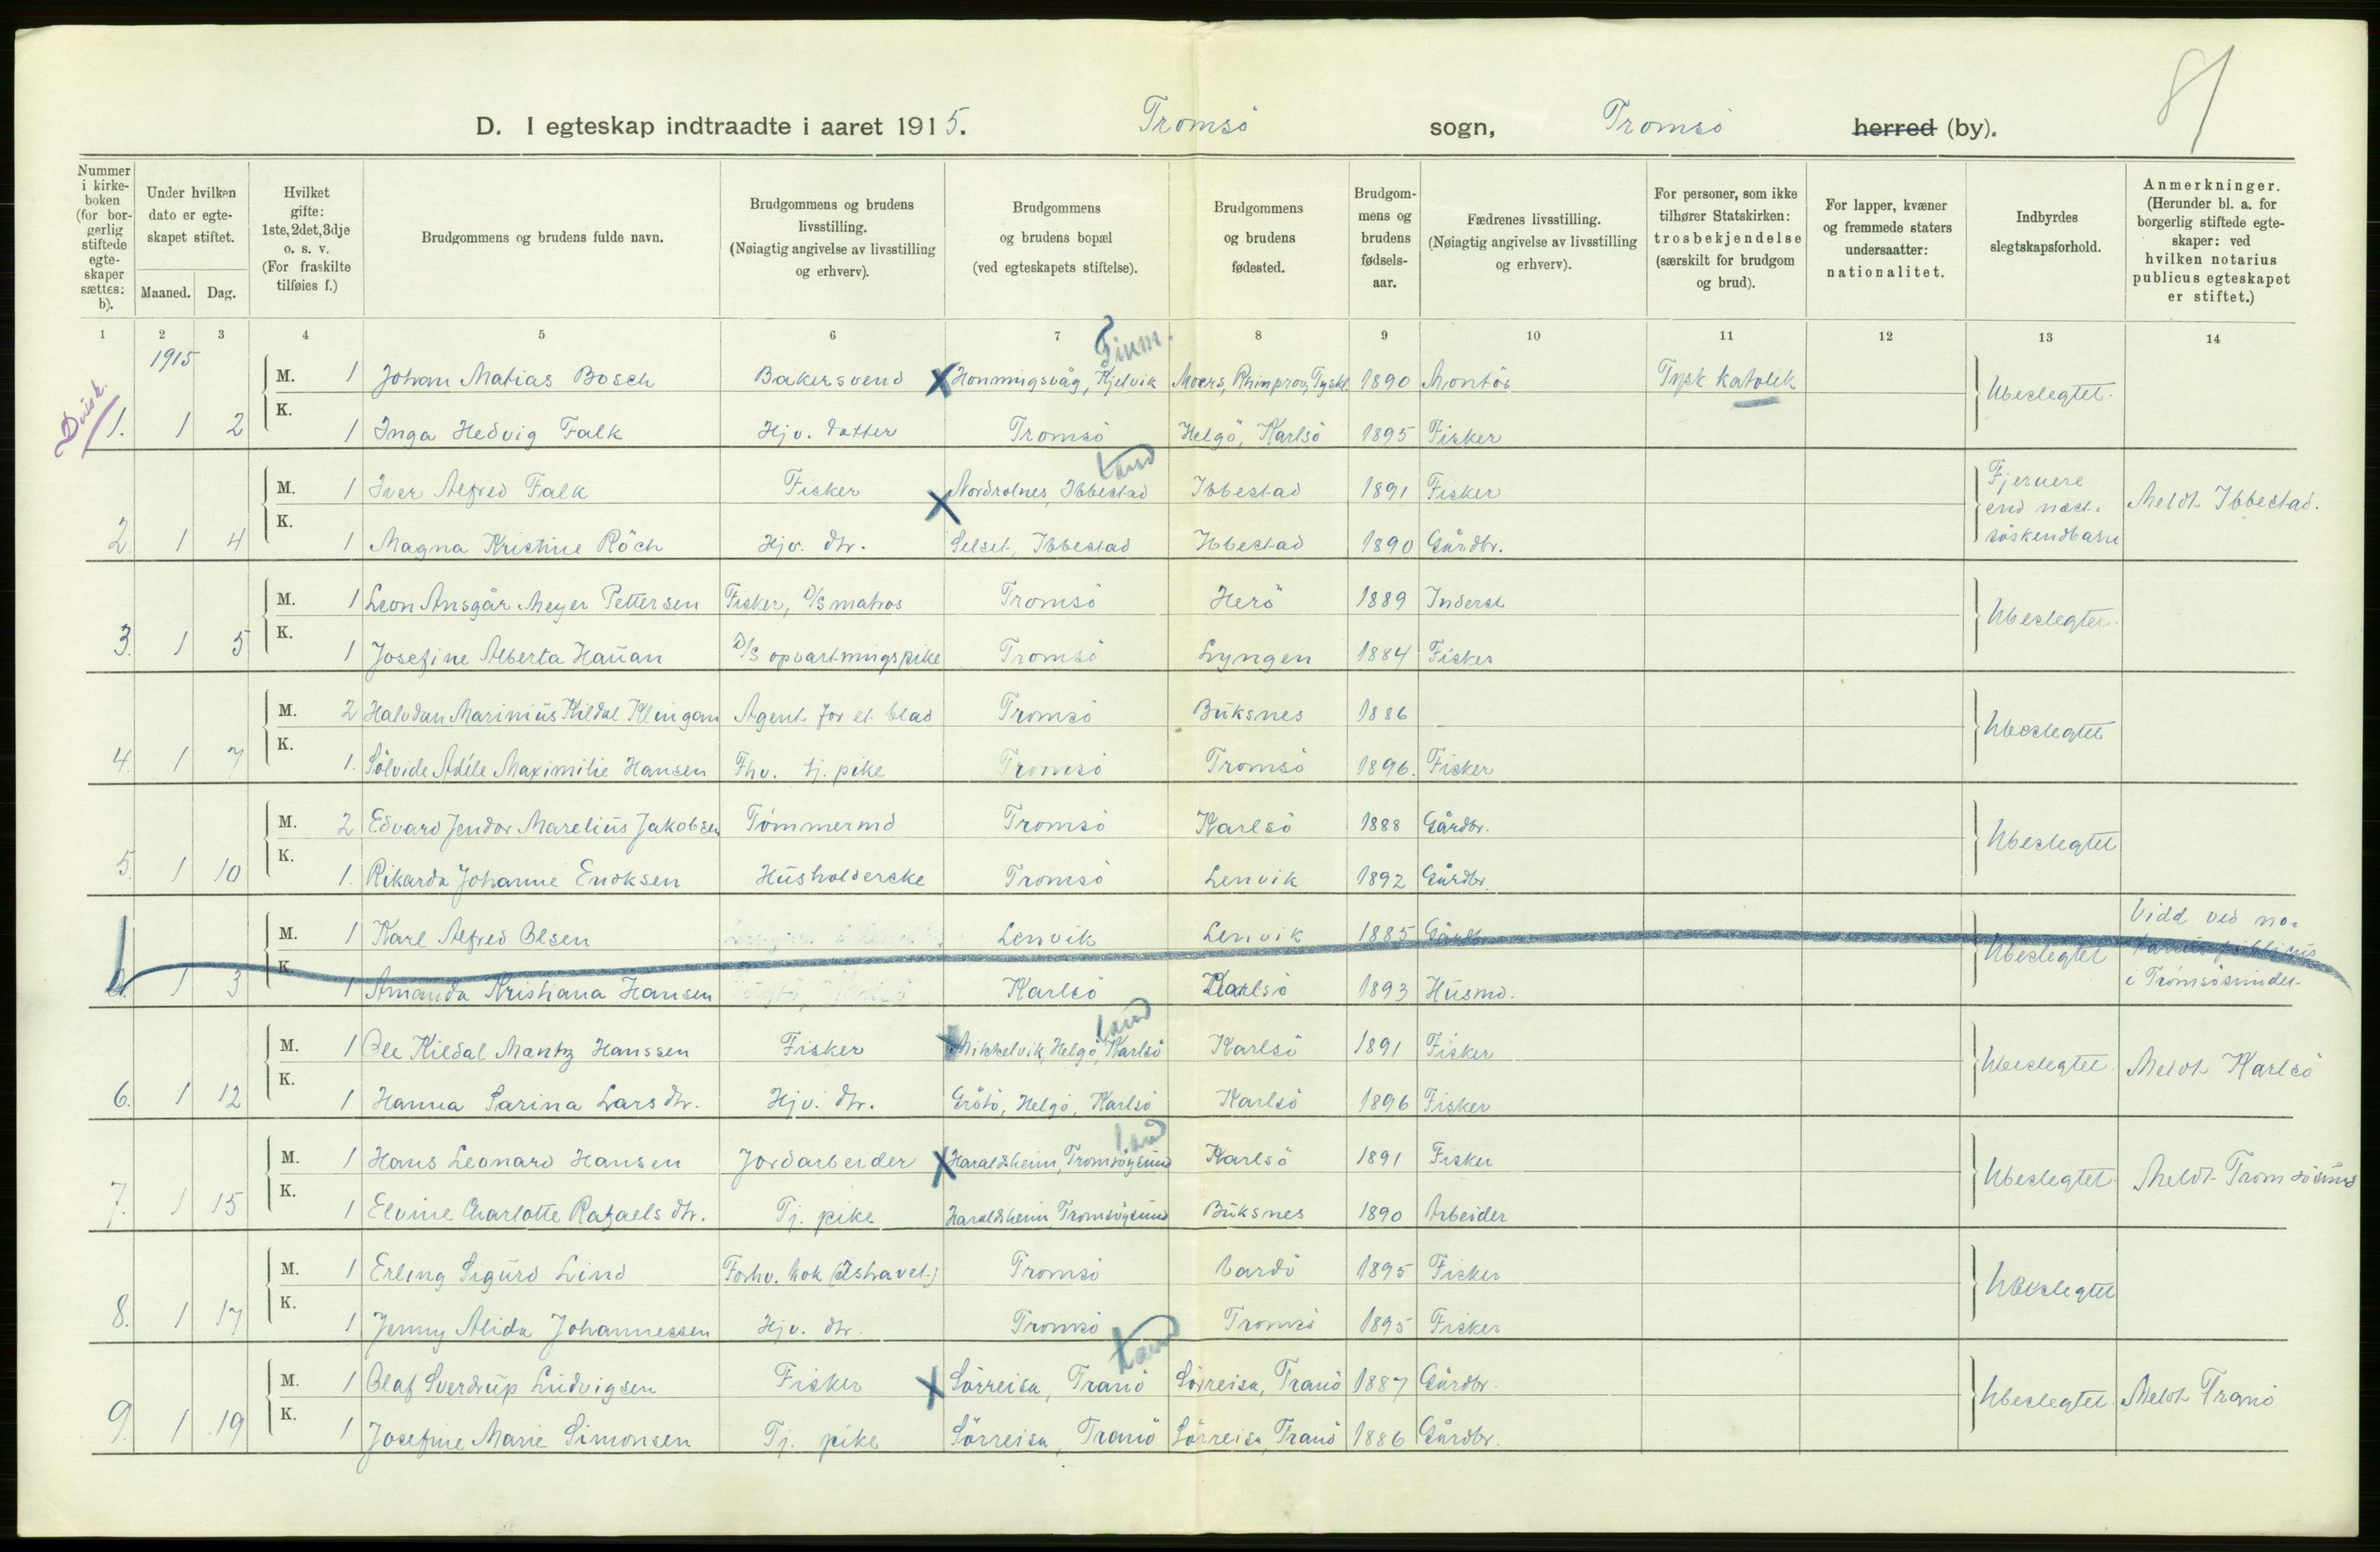 81
D. I egteskap indtraadte i aaret 1915. Tromsö sogn, Tromsö herred (by).
Nummer i kirke-boken (for bor-gerlig stiftede egte-skaper sættes: b).
Under hvilken dato er egte-skapet stiftet.
Maaned. Dag.
Hvilket gifte: 1ste, 2det, 3dje o. s. v. (For fraskilte tilføies f.)
Brudgommens og brudens fulde navn.
Brudgommens og brudens livsstilling. (Nøiagtig angivelse av livsstilling og erhverv).
Brudgommens og brudens bopæl (ved egteskapets stiftelse).
Brudgommens og brudens fødested.
Brudgom-mens og brudens fødsels-aar.
Fædrenes livsstilling. (Nøiagtig angivelse av livsstilling og erhverv).
For personer, som ikke tilhører Statskirken: trosbekjendelse (særskilt for brudgom og brud).
For lapper, kvæner og fremmede staters undersaatter: nationalitet.
Indbyrdes slegtskapsforhold.
Anmerkninger. (Herunder bl. a. for borgerlig stiftede egte-skaper: ved hvilken notarius publicus egteskapet er stiftet.)
1 2 3 4 5 6 7 8 9 10 11 12 13 14
1915
Finm.
M. 1 Johan Matias Bosch Bakersvend X Honningsvåg, Kjelvik Moers, Rhinprov, Tyskl. 1890 Montör Tysk katolik Ubeslegtet.
1. 1 2 K. 1 Inga Hedvig Falk Hjv. datter Tromsö Helgö, Karlsö 1895 Fisker
Land
M. 1 Iver Alfred Falk Fisker X Nordrolnes, Ibbestad Ibbestad 1891 Fisker Fjernere end næst-söskendbarn Meldt Ibbestad.
2. 1 4 K. 1 Magna Kristine Röch Hjv. dtr. Selset, Ibbestad Ibbestad 1890 Gårdbr.
M. 1 Leon Ansgår Meyer Pettersen Fisker, D/S matros Tromsö Herö 1889 Inderst Ubeslegtet.
3. 1 5 K. 1 Josefine Alberta Hauan D/S opvartningspike Tromsö Lyngen 1884 Fisker
M. 2 Halvdan Marinius Kildal Klingan Agent for et blad Tromsö Buksnes 1886 Ubeslegtet
4. 1 7 K. 1. Sölvide Adéle Maximilie Hansen Fhv. tj. pike Tromsö Tromsö 1896. Fisker
M. 2 Edvard Jendor Marelius Jakobsen Tömmermd Tromsö Karlsö 1888 Gårdbr. Ubeslegtet
5. 1 10 K. 1. Rikarda Johanne Enoksen Husholderske Tromsö Lenvik 1892 Gårdbr.
M. 1 Karl Alfred Olsen Lenvik Lenvik 1885 Gårdbr. Ubeslegtet Vidd ved no-tarius publicus i Tromsösundet.
1 3 K. 1 Amanda Kristiana Hansen Karlsö Karlsö 1893 Husmd.
Land
M. 1 Ole Kildal Mantz Hanssen Fisker Mikkelvik, Helgö, Karlsö Karlsö 1891 Fisker Ubeslegtet. Meldt Karlsö
6. 1 12 K. 1 Hanna Sarina Larsdtr. Hjv. dtr. Grötö, Helgö, Karlsö Karlsö 1896 Fisker
Land
M. 1 Hans Leonard Hansen Jordarbeider X Haraldsheim, Tromsöysund Karlsö 1891 Fisker Ubeslegtet. Meldt Tromsösund
7. 1 15 K. 1 Elvine Charlotte Rafaelsdtr. Tj. pike Haraldsheim, Tromsöysund Buksnes 1890 Arbeider
M. 1 Erling Sigurd Lind Forhv. kok (Ishavet.) Tromsö Vardö 1895 Fisker Ubeslegtet
8. 1 17 K. 1 Jenny Alida Johannessen Hjv. dtr. Tromsö Tromsö 1895 Fisker
Land
M. 1 Olaf Sverdrup Ludvigsen Fisker X Sörreisa, Tranö Sörreisa, Tranö 1887 Gårdbr. Ubeslegtet. Meldt Tranö
9. 1 19 K. 1 Josefine Marie Simonsen Tj. pike Sörreisa, Tranö Sörreisa, Tranö 1886 Gårdbr.